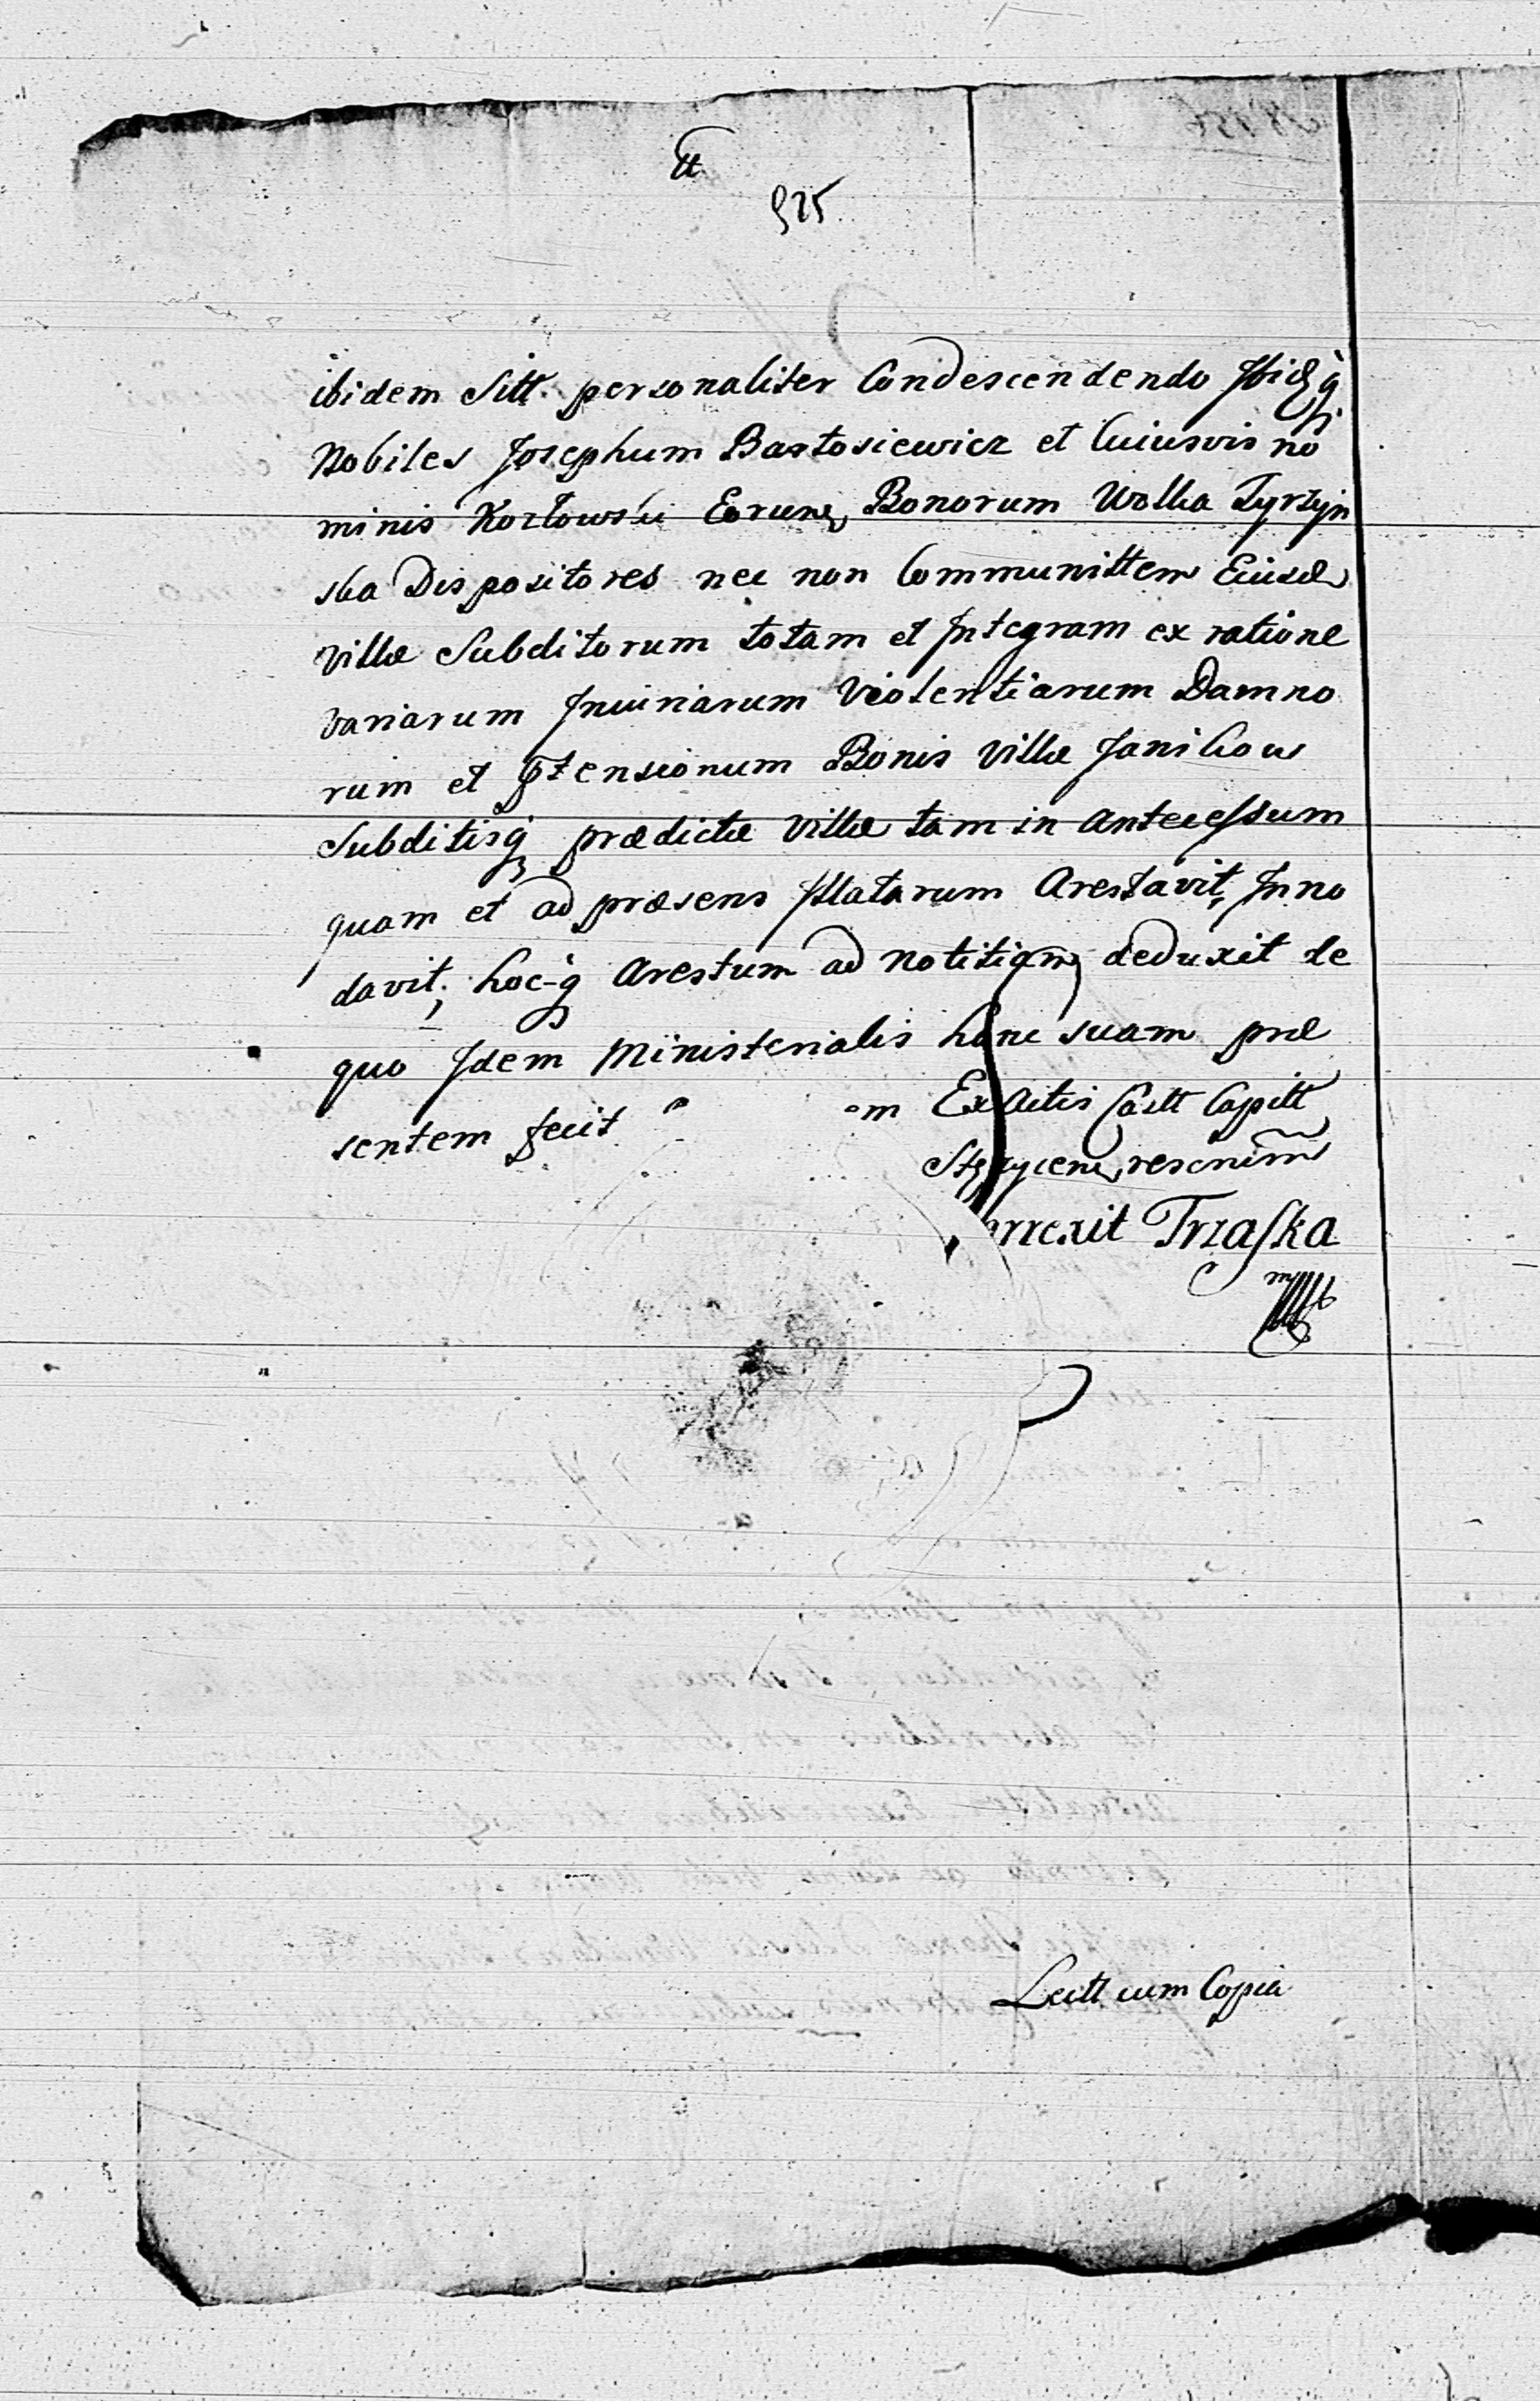 525
ibidem Sitt. personaliter Condescendendo Ibidq
Nobiles Josephum Bartosiewicz et Cuiusvis no
minis Kozłowski Eorunđ Bonorum Wolka Tyrzyn
ska Dispositores nec non Communittem Eiusđ
Villæ Subditorum totam et Integram ex ratione
variarum Iniuriarum Violentiarum Damno
rum et Ptensionum Bonis Villæ Janikow
Subditisq prædictæ Villæ tam in antecessum
quam et ad præsens Illatarum Arestavit, Inno
davit; hoc-q Arestum ad notitiam deduxit de
quo Idem Ministerialis hanc suam præ
sentem fecit
Ex Actis Castt Capitt
Stężycen,
Correxit Trzaska
mp
Lectt cum Copia